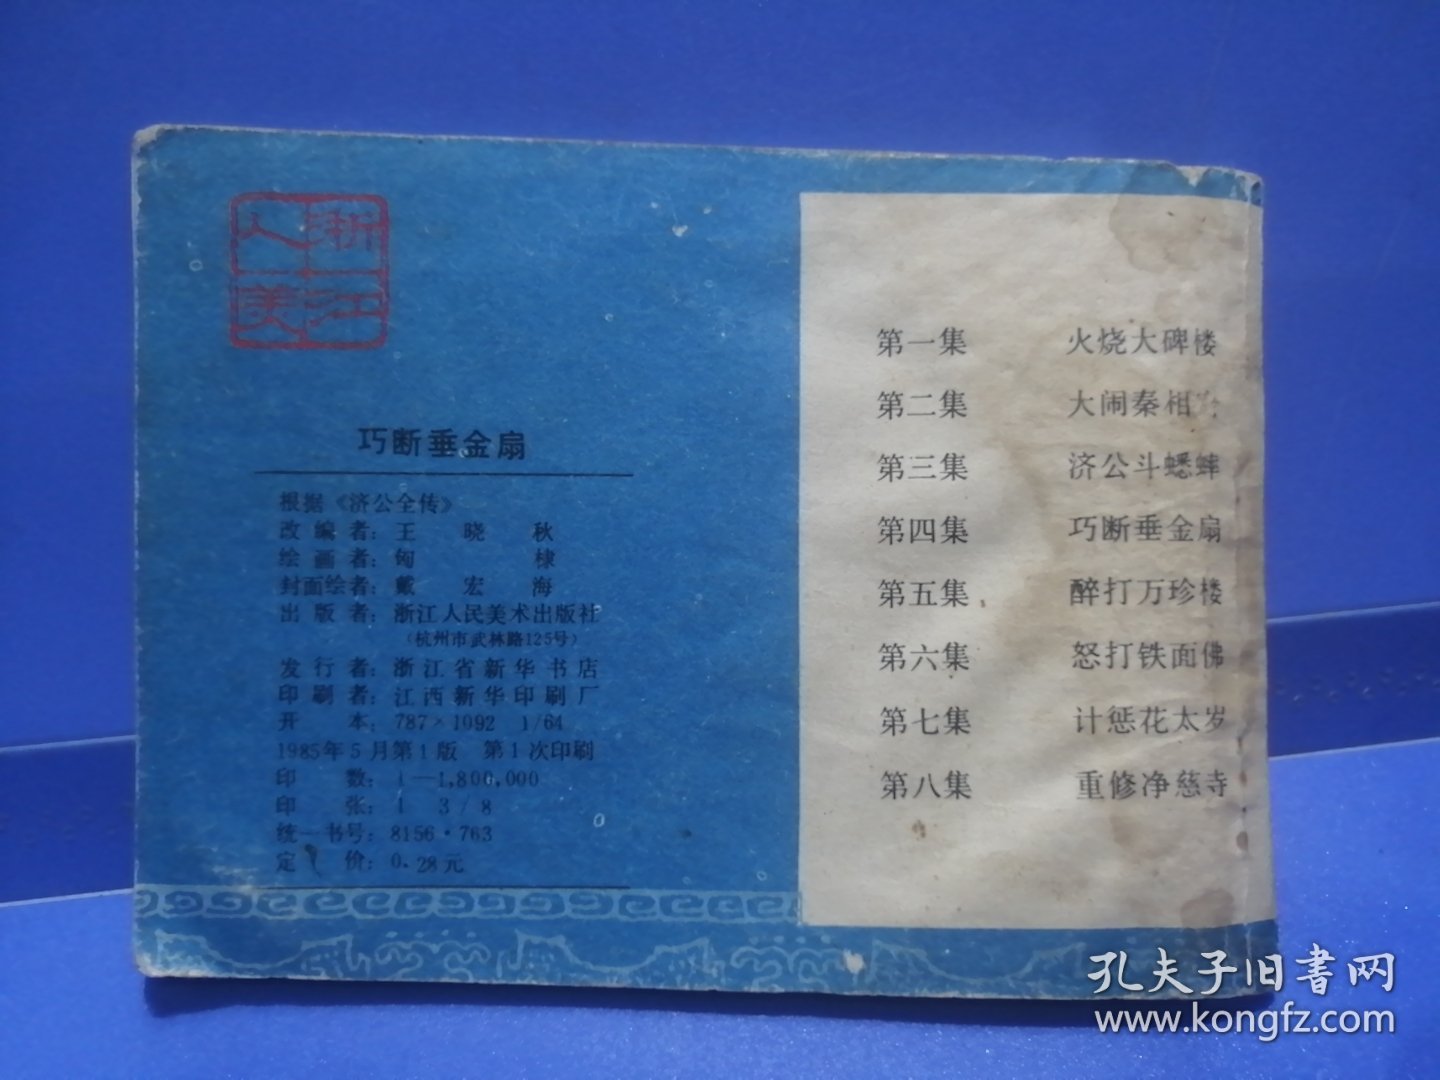 浙江
人美
巧断垂金扇
根据《济公全传》
改编者：王晓秋
绘画者：匈棣
封面绘者：戴宏海
出版者：浙江人民美术出版社
（杭州市武林路125号）
发行者：浙江省新华书店
印刷者：江西新华印刷厂
开本：787×1092 1/64
1985年5月第1版 第1次印刷
印数：1—1,800,000
印张：1 3/8
统一书号：8156·763
定价：0.28元
第一集 火烧大碑楼
第二集 大闹秦相
第三集 济公斗蟋蟀
第四集 巧断垂金扇
第五集 醉打万珍楼
第六集 怒打铁面佛
第七集 计惩花太岁
第八集 重修净慈寺
孔夫子旧书网
www.kongfz.com